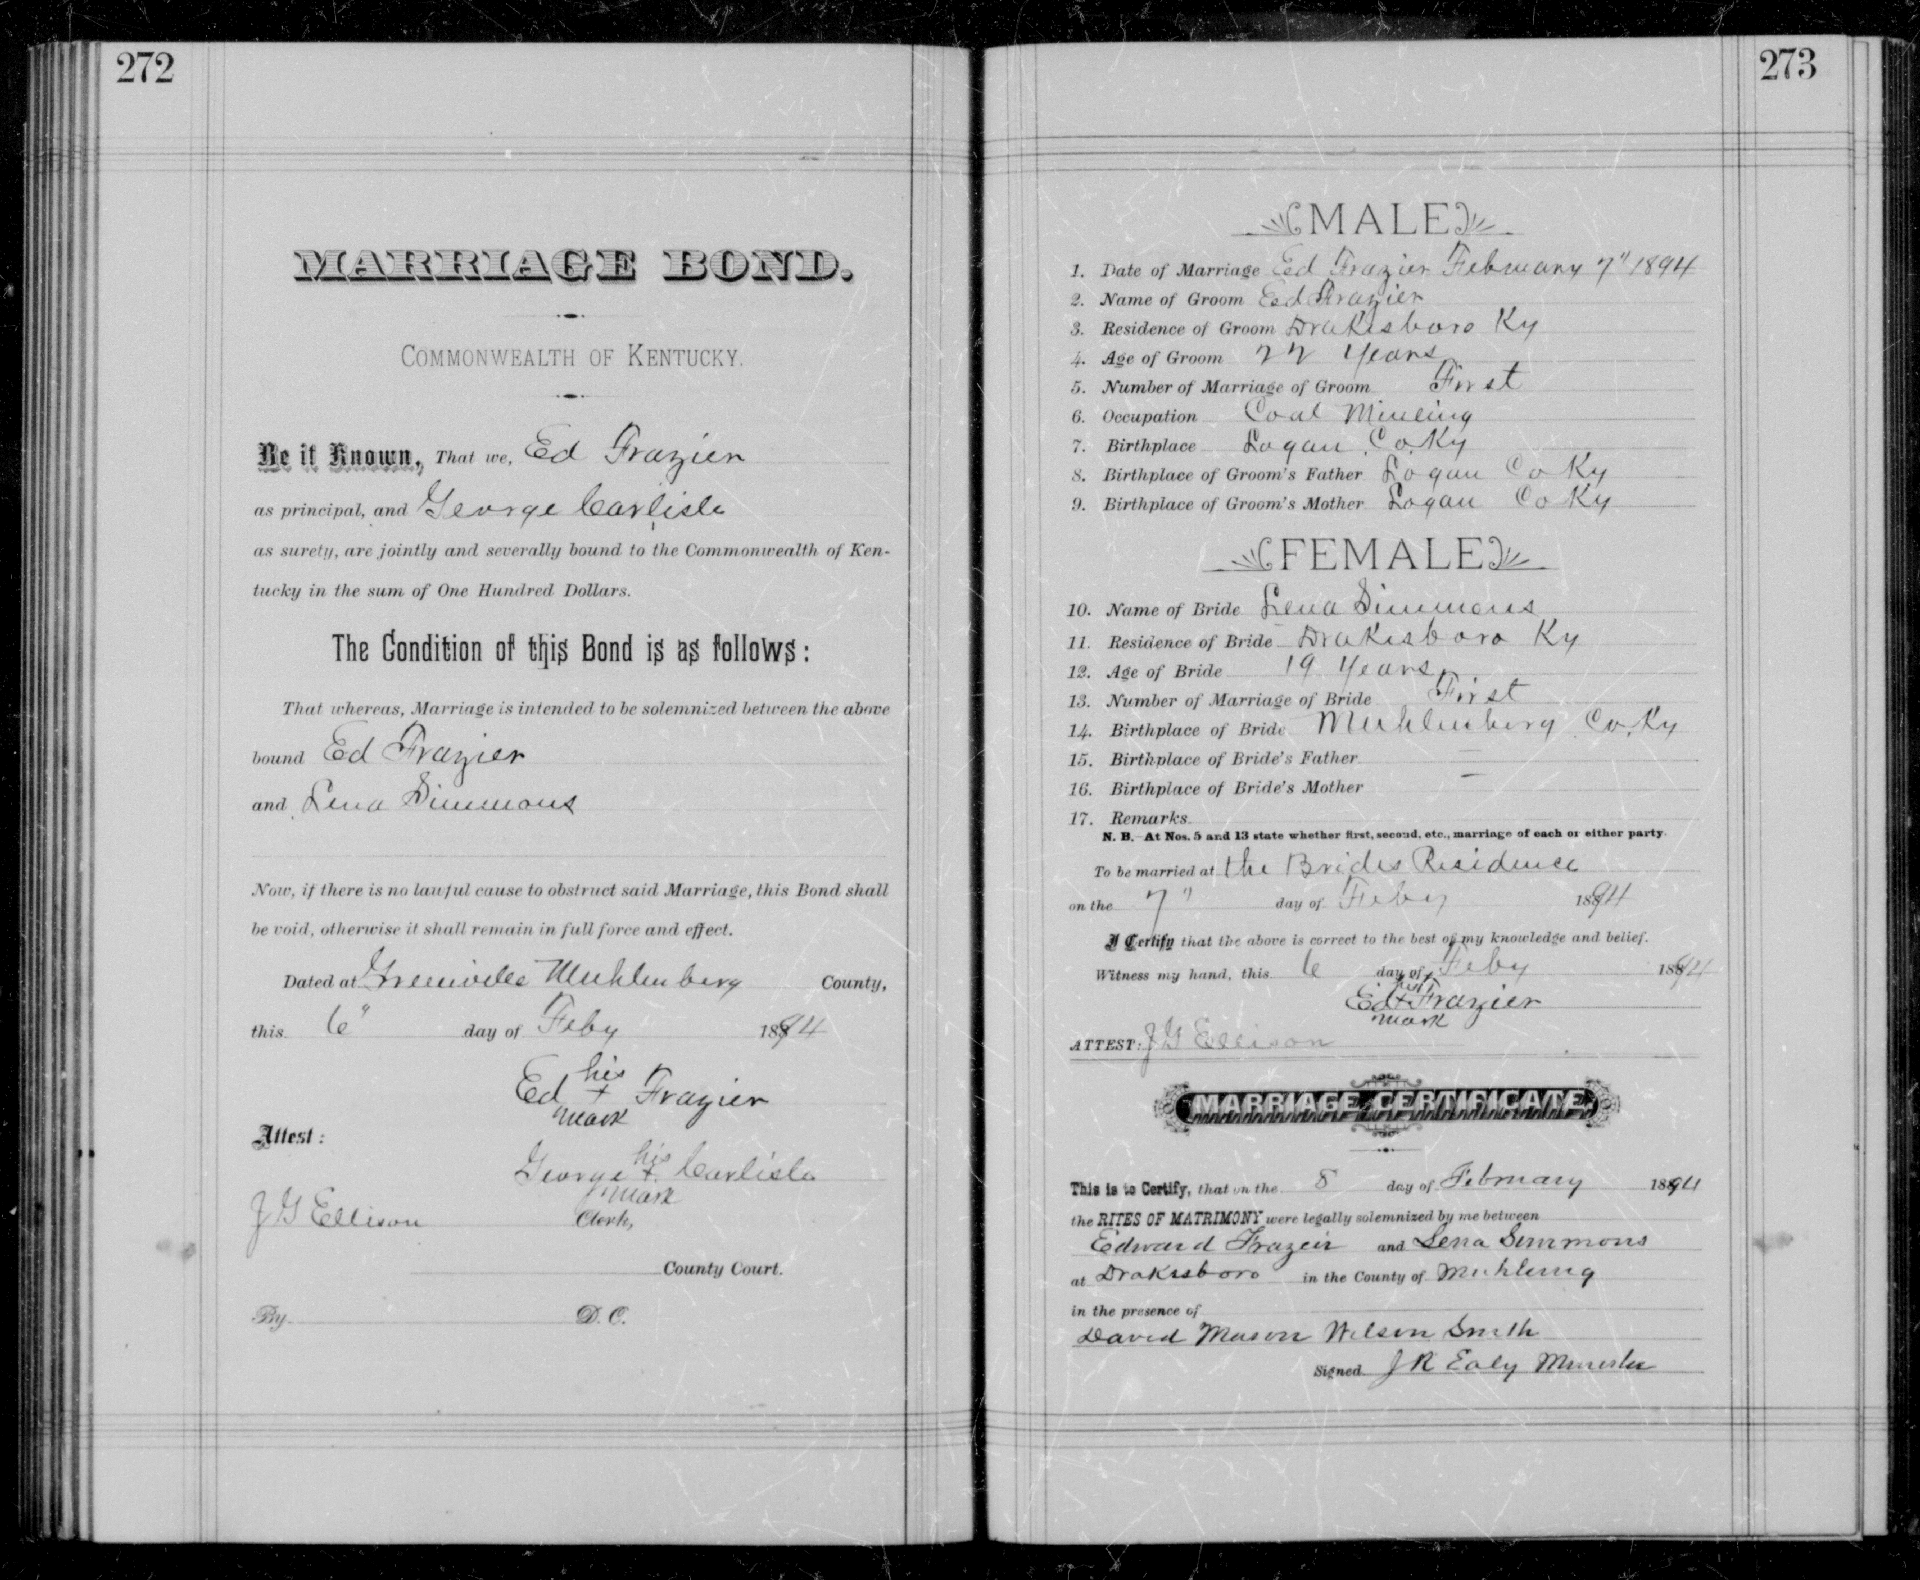 272
MARRIAGE BOND.
COMMONWEALTH OF KENTUCKY.
Be it Known, That we, Ed Frazier
as principal, and George Carlisle
as surety, are jointly and severally bound to the Commonwealth of Ken-
tucky in the sum of One Hundred Dollars.
The Condition of this Bond is as follows:
That whereas, Marriage is intended to be solemnized between the above
bound Ed Frazier
and Lena Simmons
Now, if there is no lawful cause to obstruct said Marriage, this Bond shall
be void, otherwise it shall remain in full force and effect.
Dated at Greenville Muhlenberg County,
this 6" day of Feby 1894
Ed his + mark Frazier
Attest:
George his + mark Carlisle
J G Ellison Clerk,
County Court.
By D. C.
273
MALE
1. Date of Marriage Ed Frazier February 7" 1894
2. Name of Groom Ed Frazier
3. Residence of Groom Drakesboro Ky
4. Age of Groom 22 Years
5. Number of Marriage of Groom First
6. Occupation Coal Mineing
7. Birthplace Logan Co. Ky
8. Birthplace of Groom's Father Logan Co Ky
9. Birthplace of Groom's Mother Logan Co Ky
FEMALE
10. Name of Bride Lena Simmons
11. Residence of Bride Drakesboro Ky
12. Age of Bride 19 Years
13. Number of Marriage of Bride First
14. Birthplace of Bride Muhlenberg Co. Ky
15. Birthplace of Bride's Father —
16. Birthplace of Bride's Mother —
17. Remarks
N. B.—At Nos. 5 and 13 state whether first, second, etc., marriage of each or either party.
To be married at the Brides Residence
on the 7" day of Feby 1894
I Certify that the above is correct to the best of my knowledge and belief.
Witness my hand, this 6 day of Feby 1894
Ed his + mark Frazier
ATTEST: J G Ellison
MARRIAGE CERTIFICATE.
This is to Certify, that on the 8 day of February 1894
the RITES OF MATRIMONY were legally solemnized by me between
Edward Frazeir and Lena Simmons
at Drakesboro in the County of Muhlenig
in the presence of
David Mason Wilson Smith
Signed J R Ealy Minister